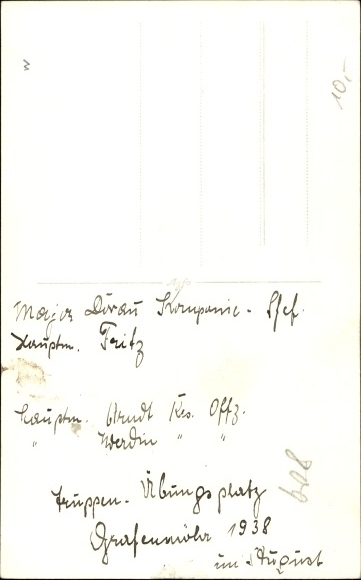 10,-
Major Dörau Kompanie - Chef.
Hauptm. Fritz
Hauptm. Arndt Res. Offz.
" Werdin " "
Truppen - Übungsplatz
Grafenwöhr 1938
im August